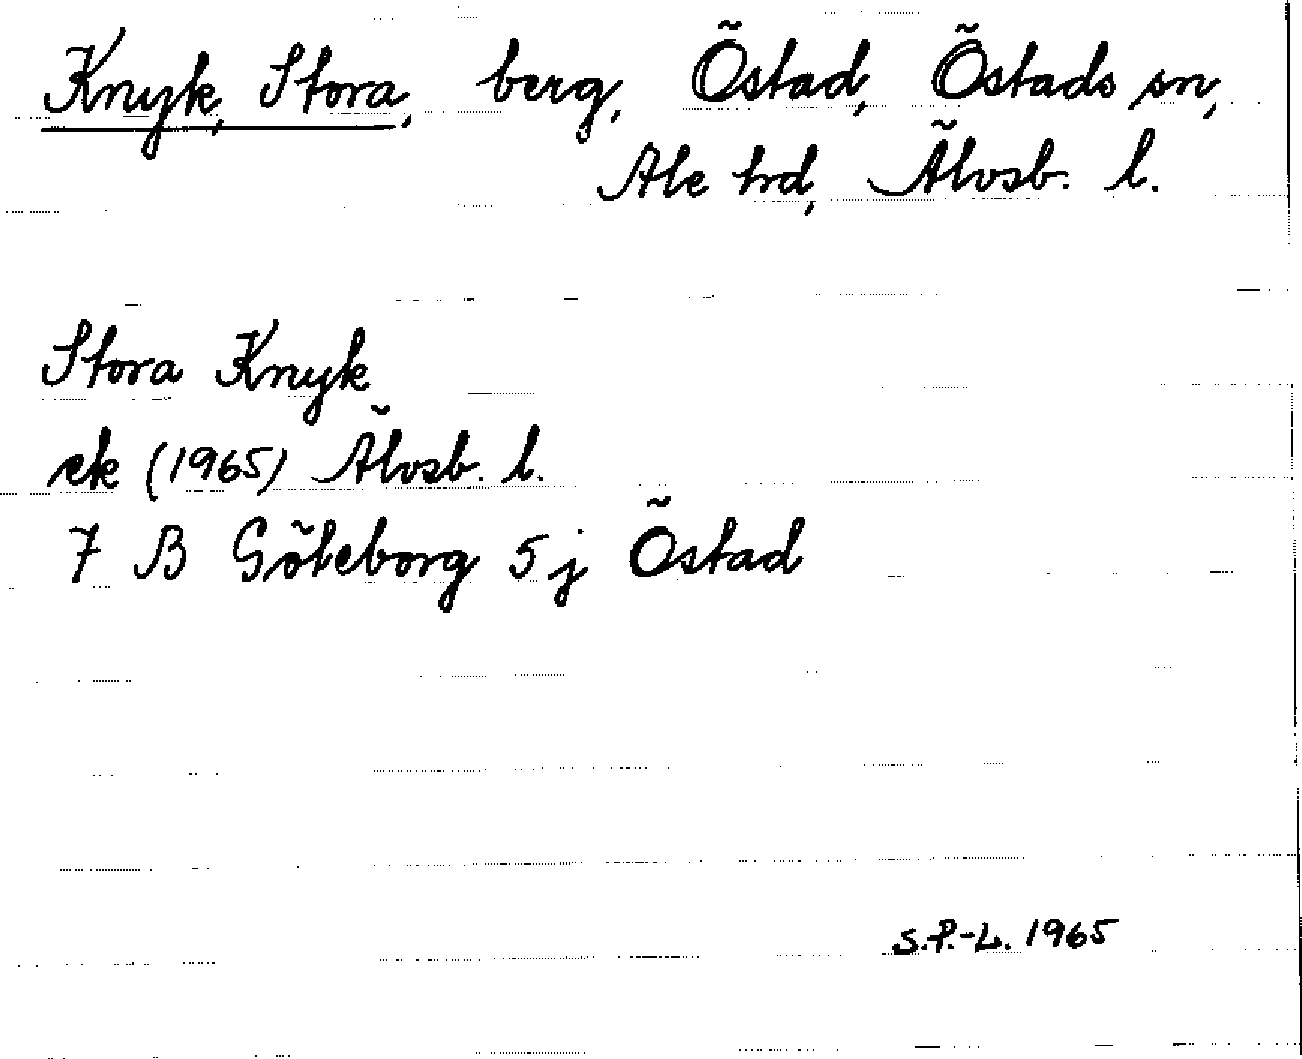 Knyk, Stora, berg, Östad, Östads sn,
Ale hd, Älvsb. l.
Stora Knyk
ek (1965) Älvsb. l.
7 B Göteborg 5 j Östad
S.P.-L. 1965